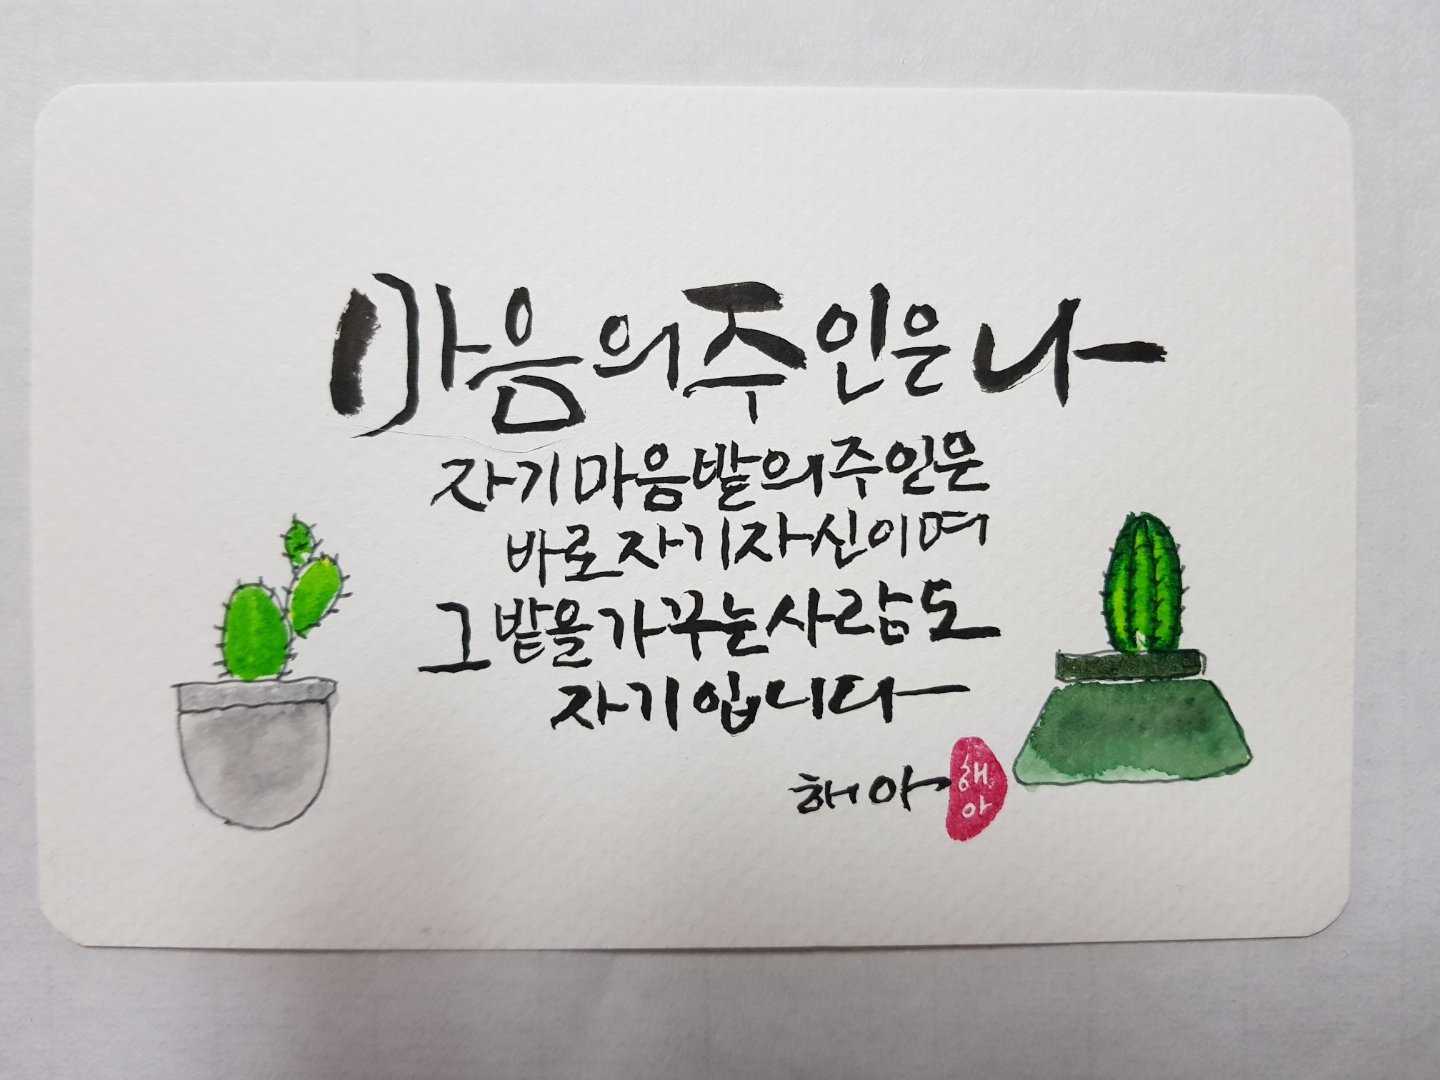 마음의 주인은 나
자기 마음밭의 주인은
바로 자기 자신이며
그 밭을 가꾸는 사람도
자기입니다
해아
해아